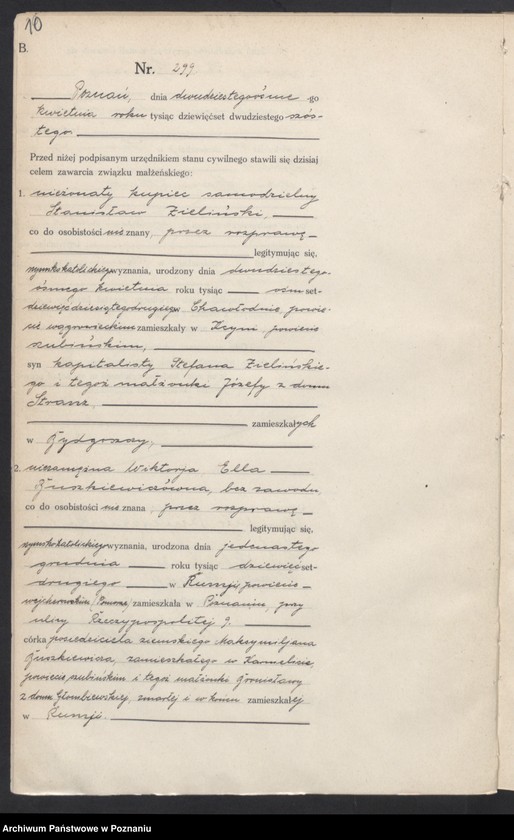 10
B.
Nr. 299
Poznań, dnia dwudziestegoósme go
kwietnia roku tysiąc dziewięćset dwudziestego szós-
tego.
Przed niżej podpisanym urzędnikiem stanu cywilnego stawili się dzisiaj
celem zawarcia związku małżeńskiego:
1. nieżonaty kupiec samodzielny
Stanisław Zieliński,
co do osobistości nie znany, przez rozprawę
legitymując się,
rzymskokatolickiego wyznania, urodzony dnia dwudziestego
ósmego kwietnia roku tysiąc ośm set-
dziewięćdziesiątego drugiego w powie-
cie wągrowieckim zamieszkały w Kcyni, powiecie
szubińskim,
syn kapitalisty Stefana Zielińskie-
go i tegoż małżonki Józefy z domu
zamieszkałych
w Bydgoszczy,
2. niezamężna Wiktorja Ella
bez zawodu
co do osobistości nie znana, przez rozprawę
legitymując się,
rzymskokatolickiego wyznania, urodzona dnia jedenastego
grudnia roku tysiąc dziewięć set-
drugiego w Rumji, powiecie
wejherowskim zamieszkała w Poznaniu, przy
ulicy Rzeczypospolitej 9.
córka posiedziciela ziemskiego Maksymiljana
zamieszkałego w
powiecie szubińskim i tegoż małżonki Bronisławy
z domu zmarłej i w końcu zamieszkałej
w Rumji.
Archiwum Państwowe w Poznaniu